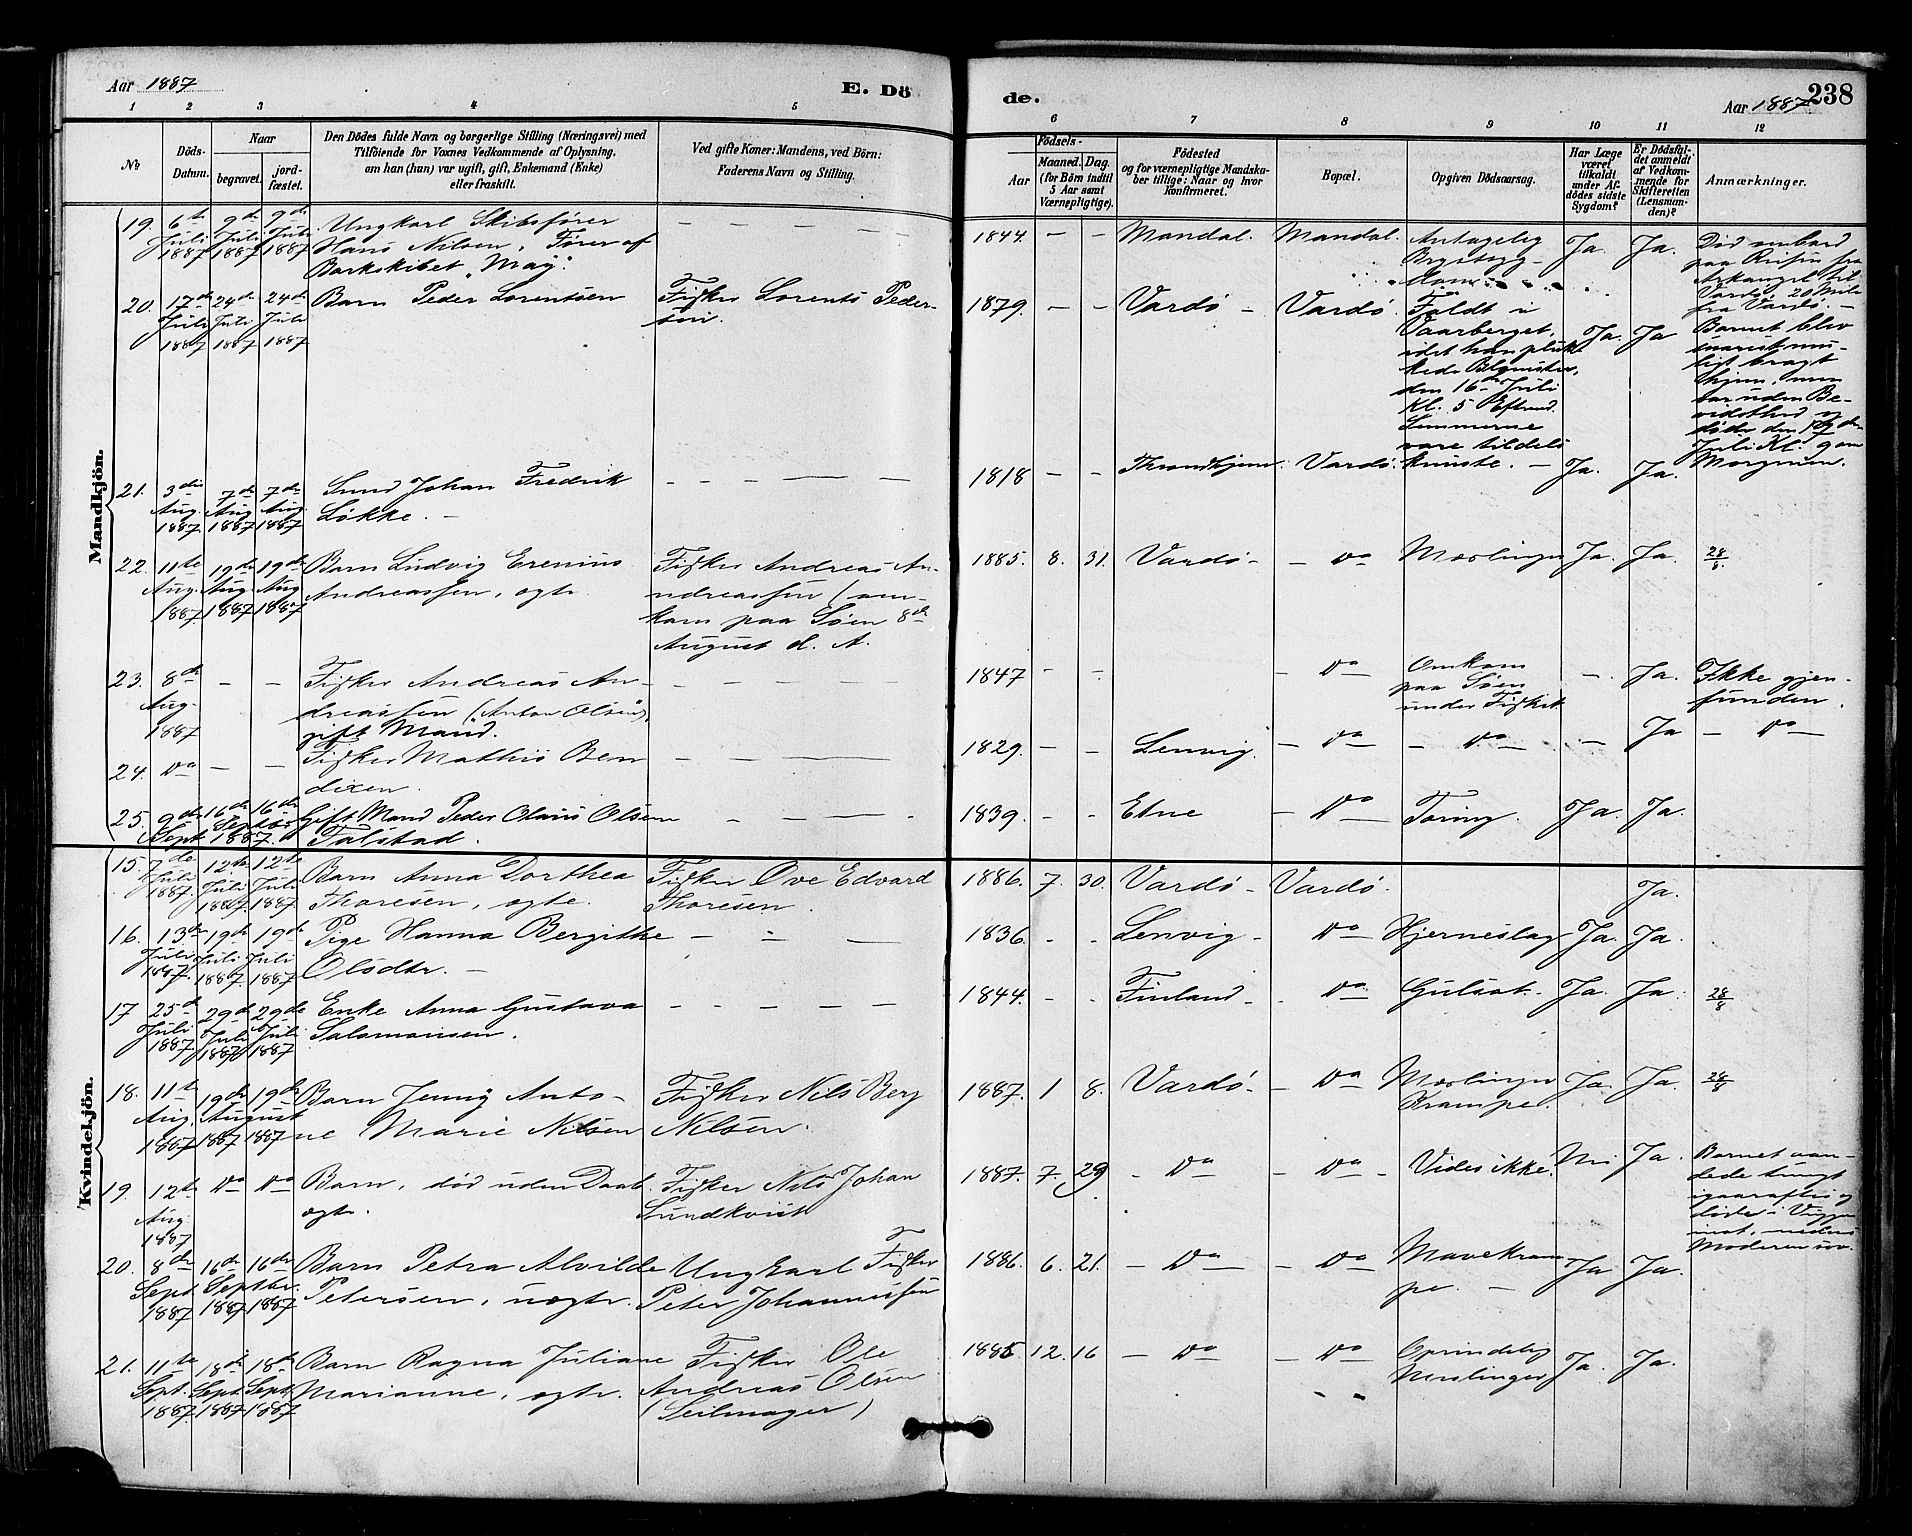 Aar 1887
E. Dö
de.
Aar 1887
238
1 2 3 4 5 6 7 8 9 10 11 12
№
Döds-Datum.
Naar
begravet.
jord-fæstet.
Den Dödes fulde Navn og borgerlige Stilling (Næringsvei) med
Tilföiende for Voxnes Vedkommende af Oplysning,
om han (hun) var ugift, gift, Enkemand (Enke)
eller fraskilt.
Ved gifte Koner: Mandens, ved Börn:
Faderens Navn og Stilling.
Födsels-
Aar
Maaned. Dag.
(for Börn indtil
5 Aar samt
Værnepligtige).
Födested
og for værnepligtige Mandska-
ber tillige: Naar og hvor
konfirmeret.
Bopæl.
Opgiven Dödsaarsag.
Har Læge
været
tilkaldt
under Af-
dödes sidste
Sygdom?
Er Dödsfal-
det anmeldt
af Vedkom-
mende for
Skifteretten
(Lensman-
den)?
Anmærkninger.
Mandkjön.
19. 6te Juli 1887 9de Juli 1887 9de Juli 1887 Ungkarl Skibsfører
Hans Nilsen, Fører af
Barkskibet "May".
1844. – – Mandal. Mandal. Antagelig
Brystsyg-
dom
Ja. Ja. Død ombord
paa Reisen fra
Arkangel til
Vardø 20 Mile
fra Vardø. –
20. 17de Juli 1887 24de Juli 1887 24de Juli 1887 Barn Peder Lorentsen
Fisker Lorents Peder-
sen.
1879. – – Vardø – Vardø. Faldt i
Vaarberget,
idet han pluk-
kede Blomster,
den 16de Juli
Kl. 5 Eftmd.
Lemmerne
vare tildels
knuste. –
Ja. Ja Barnet blev
snarest mu-
ligt bragt
hjem, men
var uden Be-
vidsthed og
døde den 17de
Juli Kl. 9 om
Morgenen.
21. 3die Aug. 1887 7de Aug. 1887 7de Aug. 1887 Svend Johan Fredrik
Løkke. –
1818 – – Throndhjem. Vardø. Ja. Ja.
22. 11te Aug. 1887. 19de Aug. 1887 19de Aug. 1887 Barn Ludvig Erenius
Andreassen, ægte.
Fisker Andreas An-
dreassen (om-
kom paa Søen 8de
August d. A.
1885. 8. 31. Vardø – – Do Mæslinger Ja. Ja. 28/8.
23. 8de Aug. 1887 – – Fisker Andreas An-
dreassen (Anton Olsen),
gift Mand.
1847 – – – Do Omkom
paa Søen
under Fisket
–. Ja. Ikke gjen-
funden.
24. Do – – Fisker Mathis Ben
dixen.
1829. – – Lenvig. – Do – Do – – Ja – Do –
25. 9de Sept. 16de 16de Septbr 1887. Gift Mand Peder Olaus Olsen
Talstad.
1839. – – Etne – Do Tæring. Ja. Ja.
Kvindekjön.
15. 7de Juli 1887. 12te Juli 1887. 12te Juli 1887 Barn Anna Dorthea
Thoresen, ægte.
Fisker Ove Edvard
Thoresen.
1886. 7. 30. Vardø – Vardø. Ja.
16. 13de Juli 1887. 19de Juli 1887. 19de Juli 1887 Pige Hanna Bergitthe
Olsdtr. –
1836. – – Lenvig – Do Hjerneslag Ja. Ja.
17 25de Juli 1887. 29de Juli 1887 29de Juli 1887 Enke Anna Gustava
Salamonsen.
1844. – – Finland – – Do Gulsot. – Ja. Ja. 28/8
18. 11te Aug. 1887 19de 19de August 1887 1887 Barn Jenny Anto-
ne Marie Nilsen
Fisker Nils Berg
Nilsen.
1887. 1 8. Vardø. – Do Mæslinger
Krampe.
Ja. Ja. 28/8
19. 12te Aug. 1887 Do Do Barn, død uden Daab.
ægte.
Fisker Nils Johan
Sundkvist
1887. 7. 29 – Do – Do – Vides ikke. Nei Ja. Barnet aan-
dede tungt
igaaraftes og
døde i Vuggen
inat, medens
Moderen sov.
20. 8de Sept. 1887 16de 16de Septbr. 1887 1887 Barn Petra Alvilde
Petersen, uægte.
Ungkarl Fisker
Peter Johannessen
1886. 6. 21. – Do – – Do – Mavekram
pe. –
Ja Ja.
21. 11te Sept. 1887. 18de Sept. 1887 18de Sept. 1887 Barn Ragna Juliane
Marianne, ægte.
Fisker Ole
Andreas Olsen
(Seilmager)
1885. 12. 16 – Do – – Do – Oprindelig
Mæslinger
Ja. Ja.